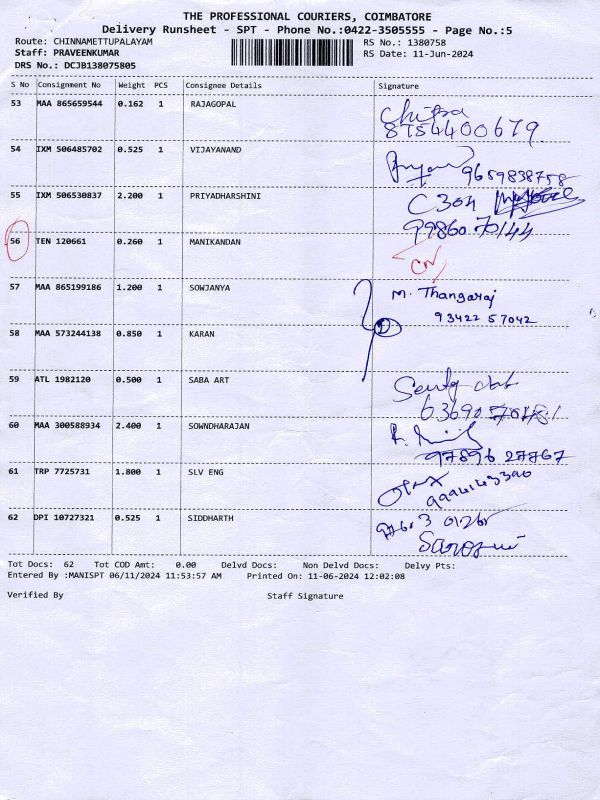 THE PROFESSIONAL COURIERS, COIMBATORE
Delivery Runsheet - SPT - Phone No.:0422-3505555 - Page No.:5
Route: CHINNAMETTUPALAYAM RS No.: 1380758
Staff: PRAVEENKUMAR RS Date: 11-Jun-2024
DRS No.: DCJB138075805
S No Consignment No Weight PCS Consignee Details Signature
53 MAA 865659544 0.162 1 RAJAGOPAL
8754400679
54 IXM 506485702 0.525 1 VIJAYANAND
9659838758
55 IXM 506530837 2.200 1 PRIYADHARSHINI C 304
9986070144
56 TEN 120661 0.260 1 MANIKANDAN
CN
57 MAA 865199186 1.200 1 SOWJANYA M. Thangaraj
93422 57042
58 MAA 573244138 0.850 1 KARAN
59 ATL 1982120 0.500 1 SABA ART
60 MAA 300588934 2.400 1 SOWNDHARAJAN
97896 27767
61 TRP 7725731 1.800 1 SLV ENG
62 DPI 10727321 0.525 1 SIDDHARTH
Tot Docs: 62 Tot COD Amt: 0.00 Delvd Docs: Non Delvd Docs: Delvy Pts:
Entered By :MANISPT 06/11/2024 11:53:57 AM Printed On: 11-06-2024 12:02:08
Verified By Staff Signature